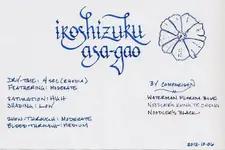 iroshizuku
asa-gao
DRY-TIME: 4 SEC (RHODIA)
FEATHERING: MODERATE
SATURATION: HIGH
SHADING: LOW
SHOW-THROUGH: MODERATE
BLEED-THROUGH: MEDIUM
BY COMPARISON
WATERMAN FLORIDA BLUE
NOODLER'S KUNG TE CHENG
NOODLER'S BLACK
2012-10-06